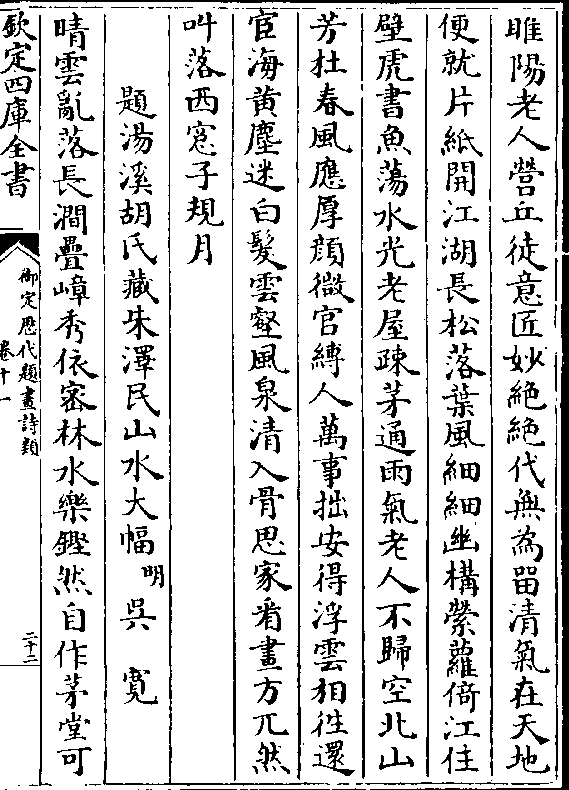 睢陽老人營丘徒意匠妙絶絶代無為留清氣在天地
便就片紙開江湖長松落葉風細細幽構縈蘿倚江住
壁虎書魚蕩水光老屋疎茅通雨氣老人不歸空北山
芳杜春風應厚顔微官縛人萬事拙安得浮雲相徃還
宦海黄塵迷白髮雲壑風泉清入骨思家看畫方兀然
叫落西窓子規月
題湯溪胡氏藏朱澤民山水大幅 明 吳寛
晴雲亂落長澗疊嶂秀依密林水樂鏗然自作茅堂可
欽定四庫全書
御定歷代題畫詩類
卷十一
二十二